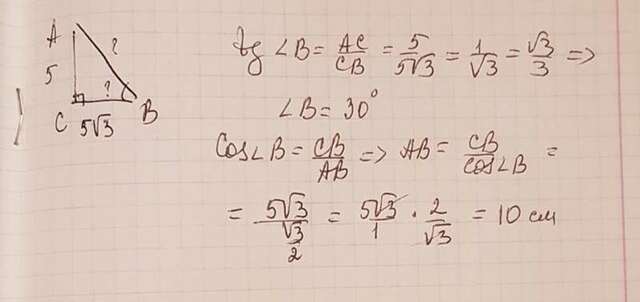 A
?
5
?
C
B
5√3
tg ∠B = AC/CB = 5/5√3 = 1/√3 = √3/3 =>
∠B = 30°
Cos∠B = CB/AB => AB = CB/cos∠B =
= 5√3/(√3/2) = 5√3/1 · 2/√3 = 10 см